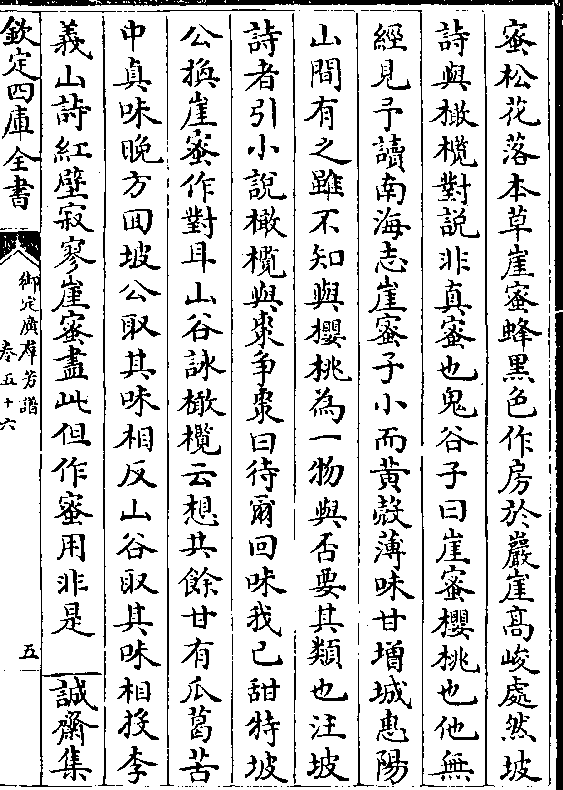 蜜松花落本草崖蜜蜂黑色作房於巖崖高峻處然坡
詩與橄欖對説非真蜜也鬼谷子曰崖蜜櫻桃也他無
經見予讀南海志崖蜜子小而黄殻薄味甘增城惠陽
山間有之雖不知與櫻桃為一物與否要其類也注坡
詩者引小説橄欖與棗争棗曰待爾回味我已甜特坡
公換崖蜜作對耳山谷詠橄欖云想共餘甘有瓜葛苦
中真味晚方回坡公取其味相反山谷取其味相投李
義山詩紅壁寂寥崖蜜盡此但作蜜用非是 誠齋集
欽定四庫全書
御定廣群芳譜
卷五十六
五